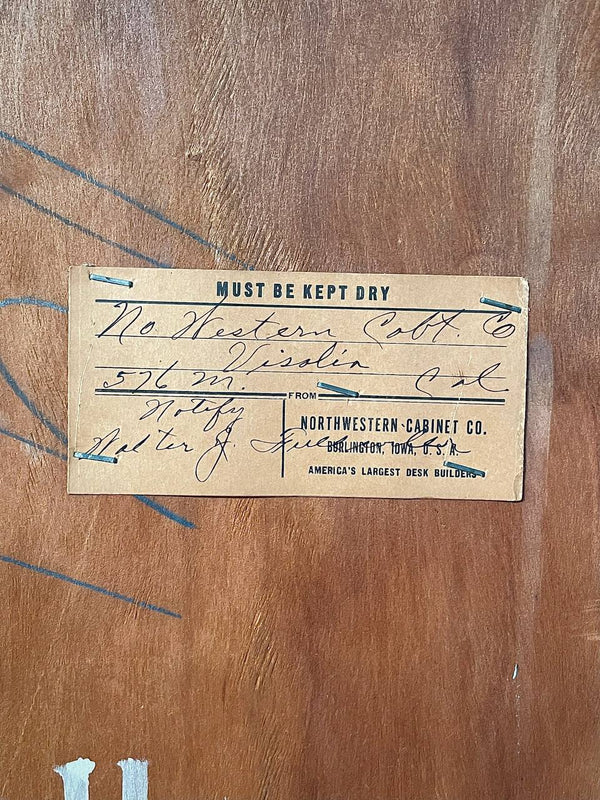 MUST BE KEPT DRY
No. Western Cabt. Co
Visalia
576 M. Cal
FROM
Notify
Walter J.
NORTHWESTERN CABINET CO.
BURLINGTON, IOWA, U. S. A.
AMERICA'S LARGEST DESK BUILDERS